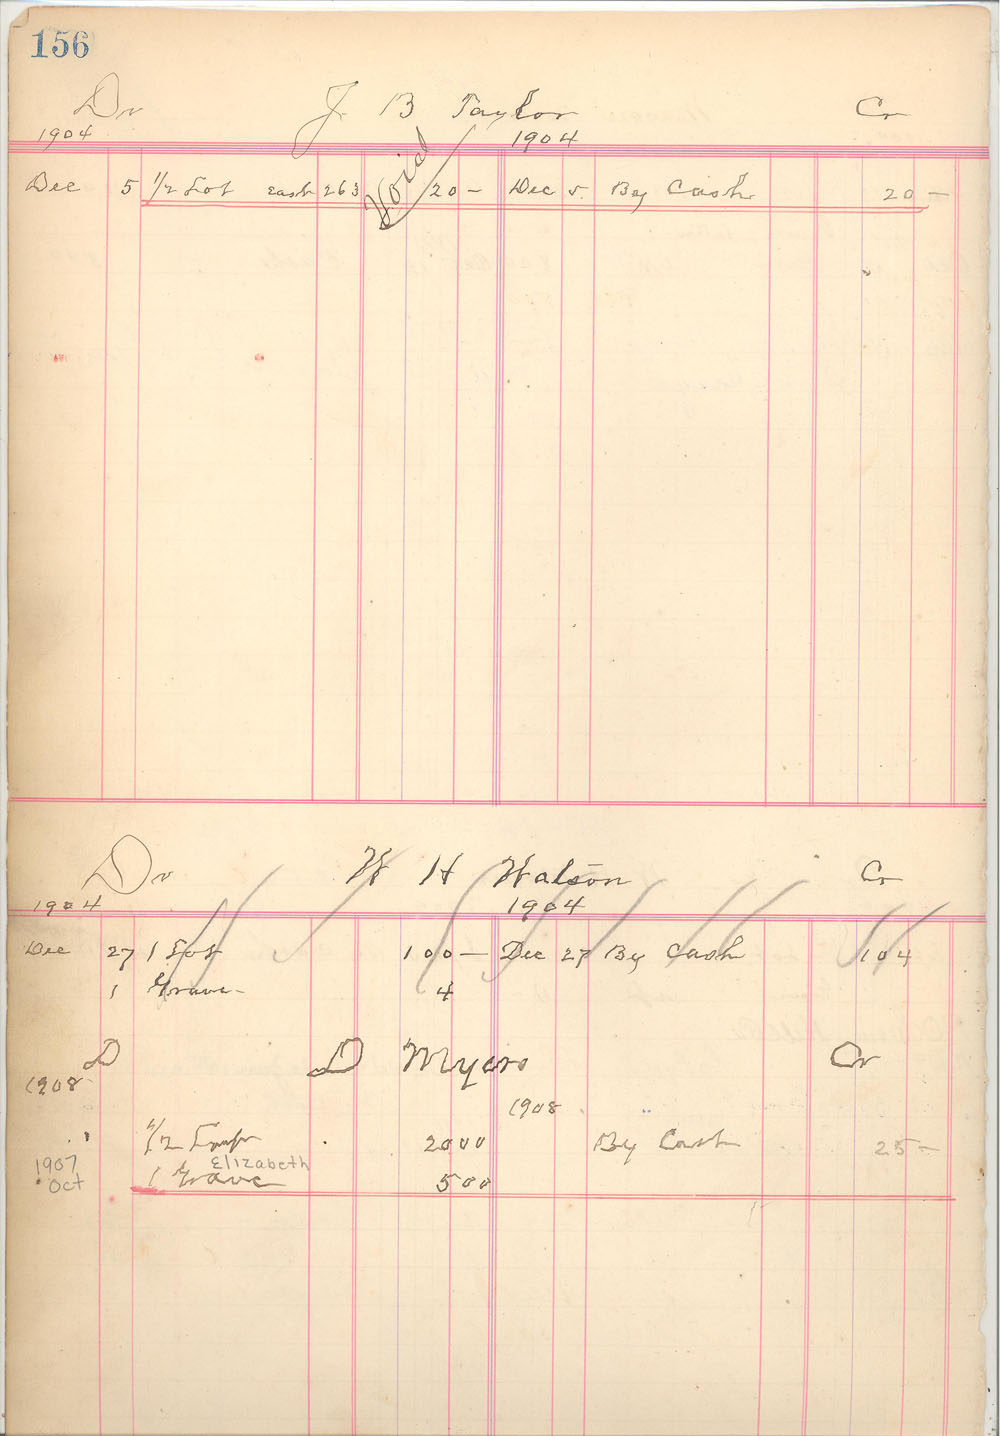 156
Dr J B Taylor Cr
1904 1904
Dec 5 1/2 Lot east 263 Void 20 — Dec 5. By Cash 20 —
Dr W H Watson Cr
1904 1904
Dec 27 1 Lot 100 — Dec 27 By Cash 104
1 Grave 4
D D Myers Cr
1908
1908
1/2 2000 By Cash 25 —
1907 Elizabeth
Oct 1 Grave 500